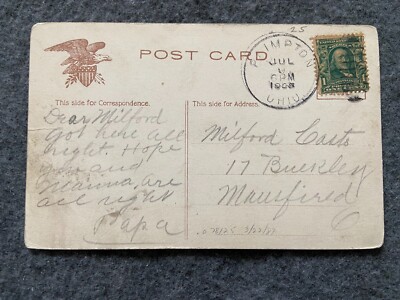 25
POST CARD
PLIMPTON
JUL
6 PM
1908
OHIO.
This side for Correspondence.
This side for Address.
Dear Milford
Got here all
right. Hope
you and
Mamma, are
all right
Papa
Milford Casto
17 Buckley
Mansfired
O